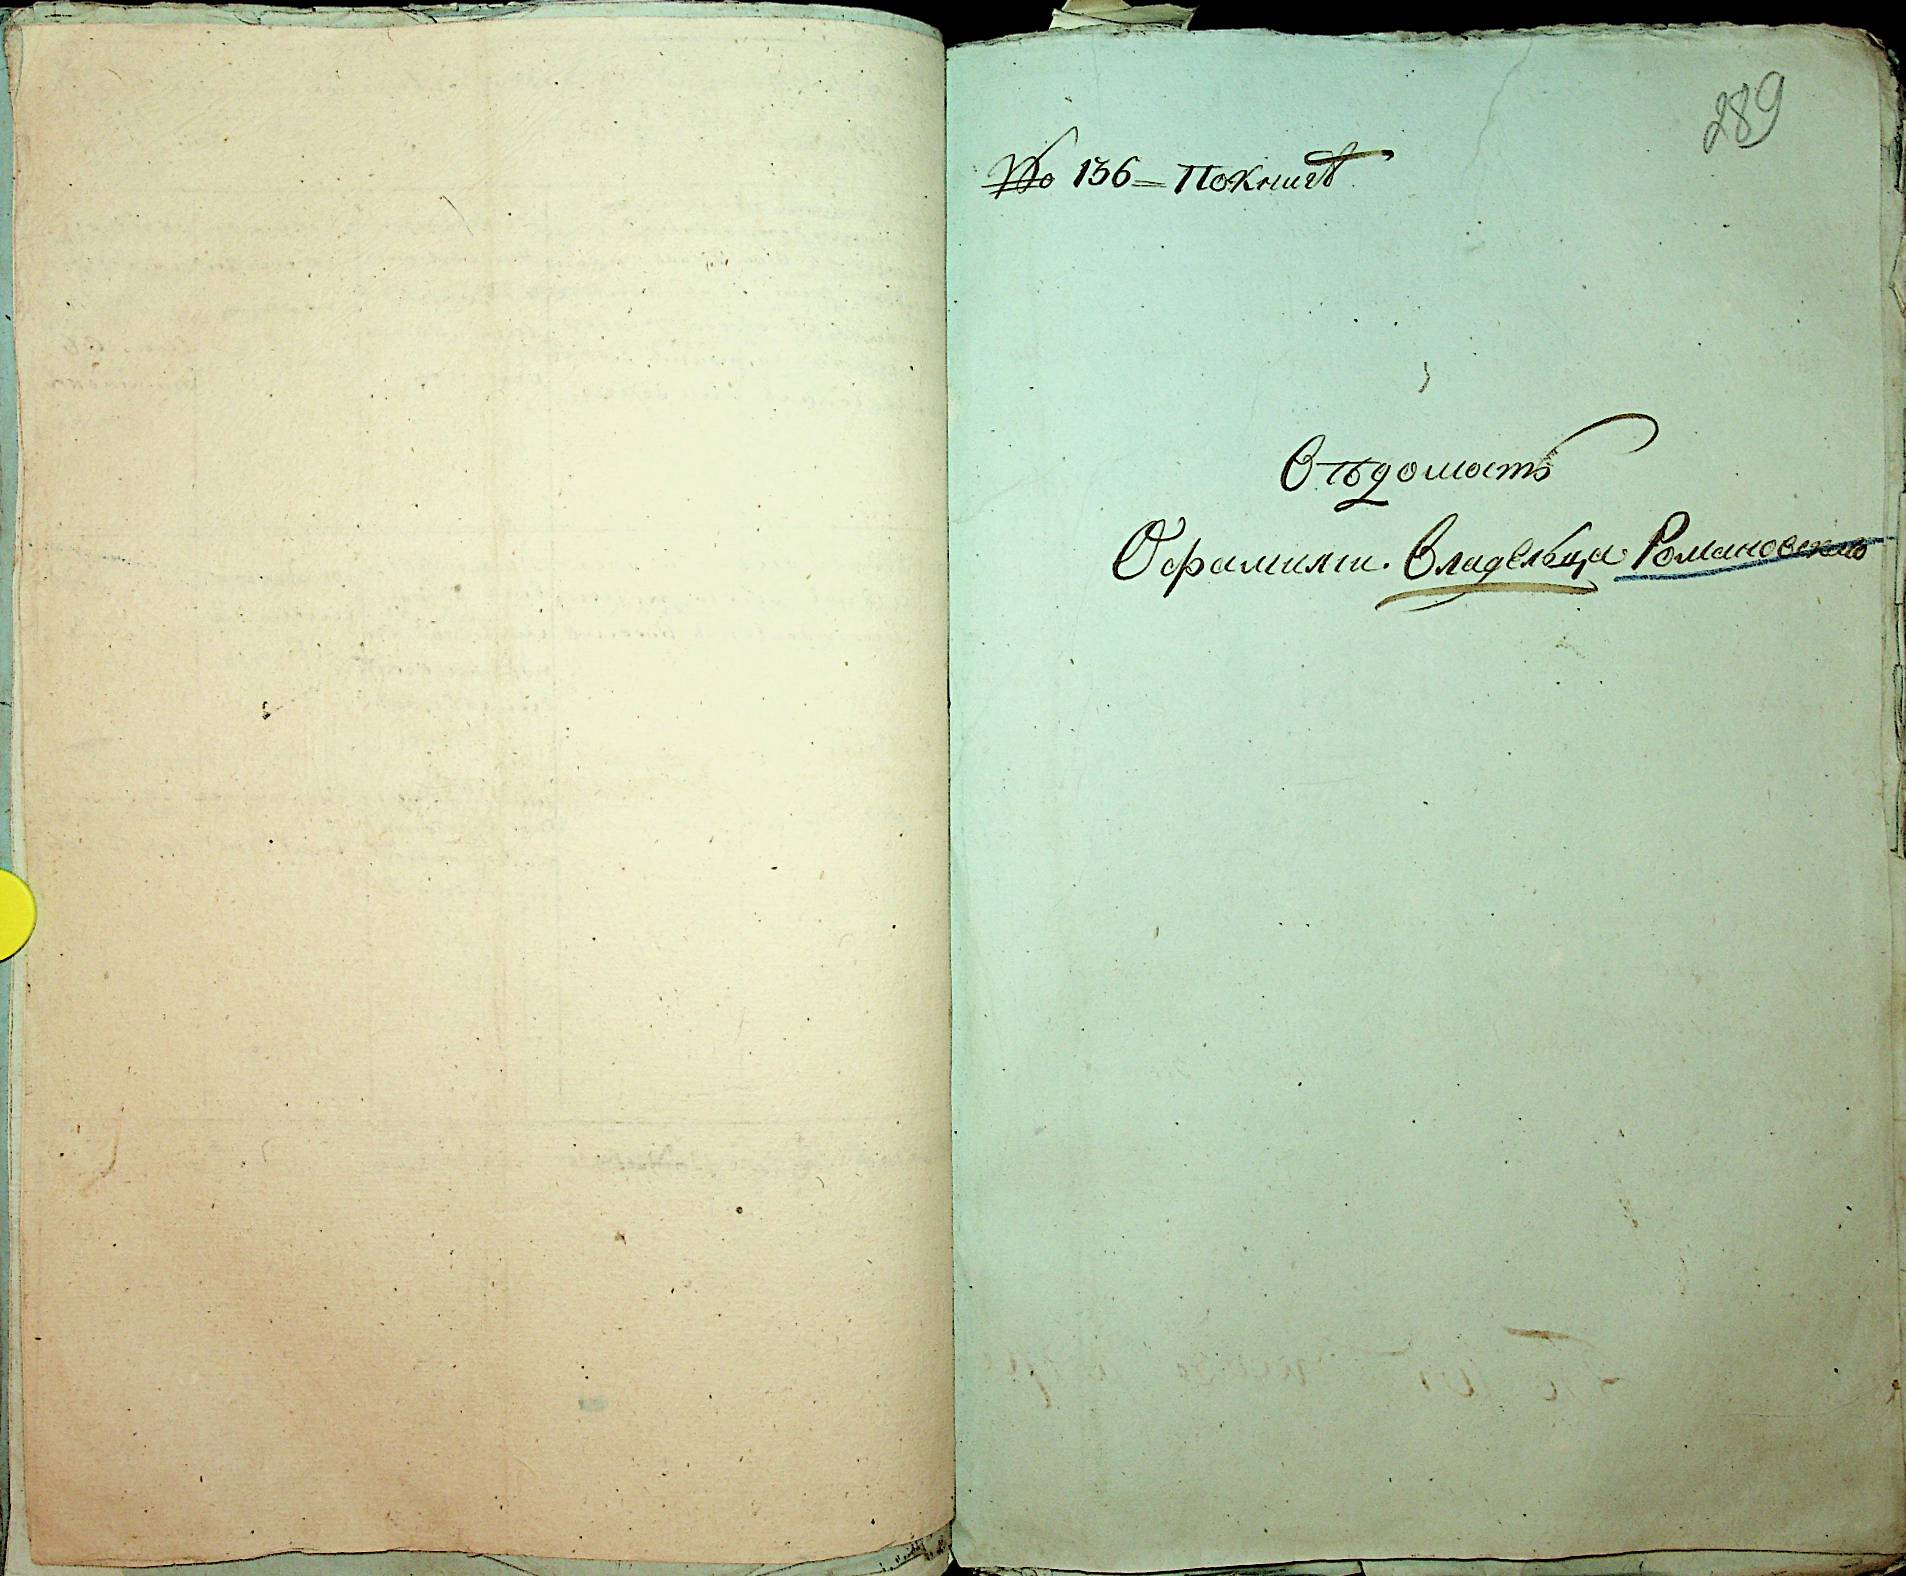 289
№ 136 = По книгѣ
Вѣдомость
О фамилiи. Владельца Романовскаго